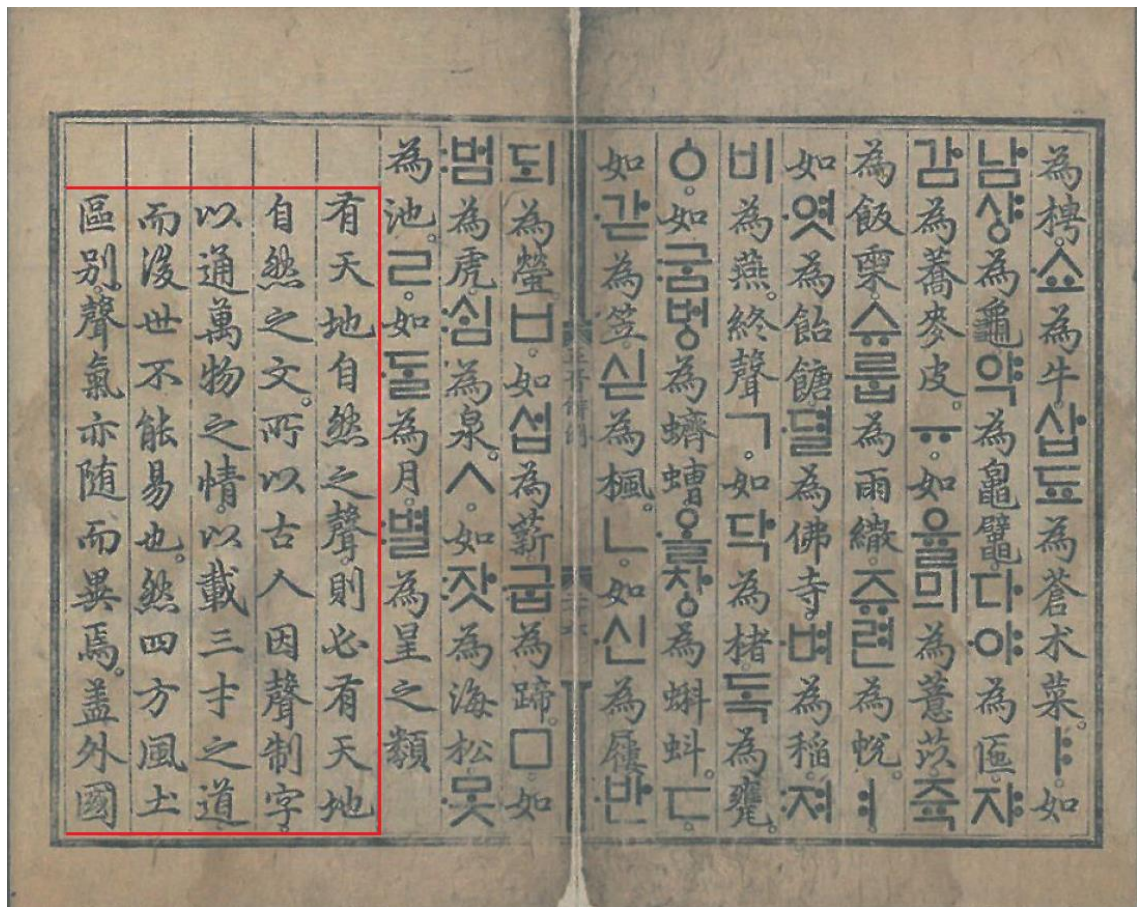 為梬。쇼為牛。삽됴為蒼朮菜。ㅑ。如
남샤ᇰ為龜。약為𪓟鼊。다야為匜。쟈
감為蕎麥皮。ㅠ。如율믜為薏苡。쥭
為飯𣖄。슈룹為雨繖。쥬련為帨。ㅕ。
如엿為飴餹。뎔為佛寺。벼為稻。져
비為燕。終聲ㄱ。如닥為楮。독為甕。
ㆁ。如굼버ᇰ為蠐螬。올차ᇰ為蝌蚪。ㄷ。
如갇為笠。싣為楓。ㄴ。如신為屨。반
되為螢。ㅂ。如섭為薪。굽為蹄。ㅁ。如
범為虎。심為泉。ㅅ。如잣為海松。못
為池。ㄹ。如ᄃᆞᆯ為月。별為星之類
有天地自然之聲。則必有天地
自然之文。所以古人因聲制字。
以通萬物之情。以載三才之道。
而後世不能易也。然四方風土
區别。聲氣亦随而異焉。盖外國